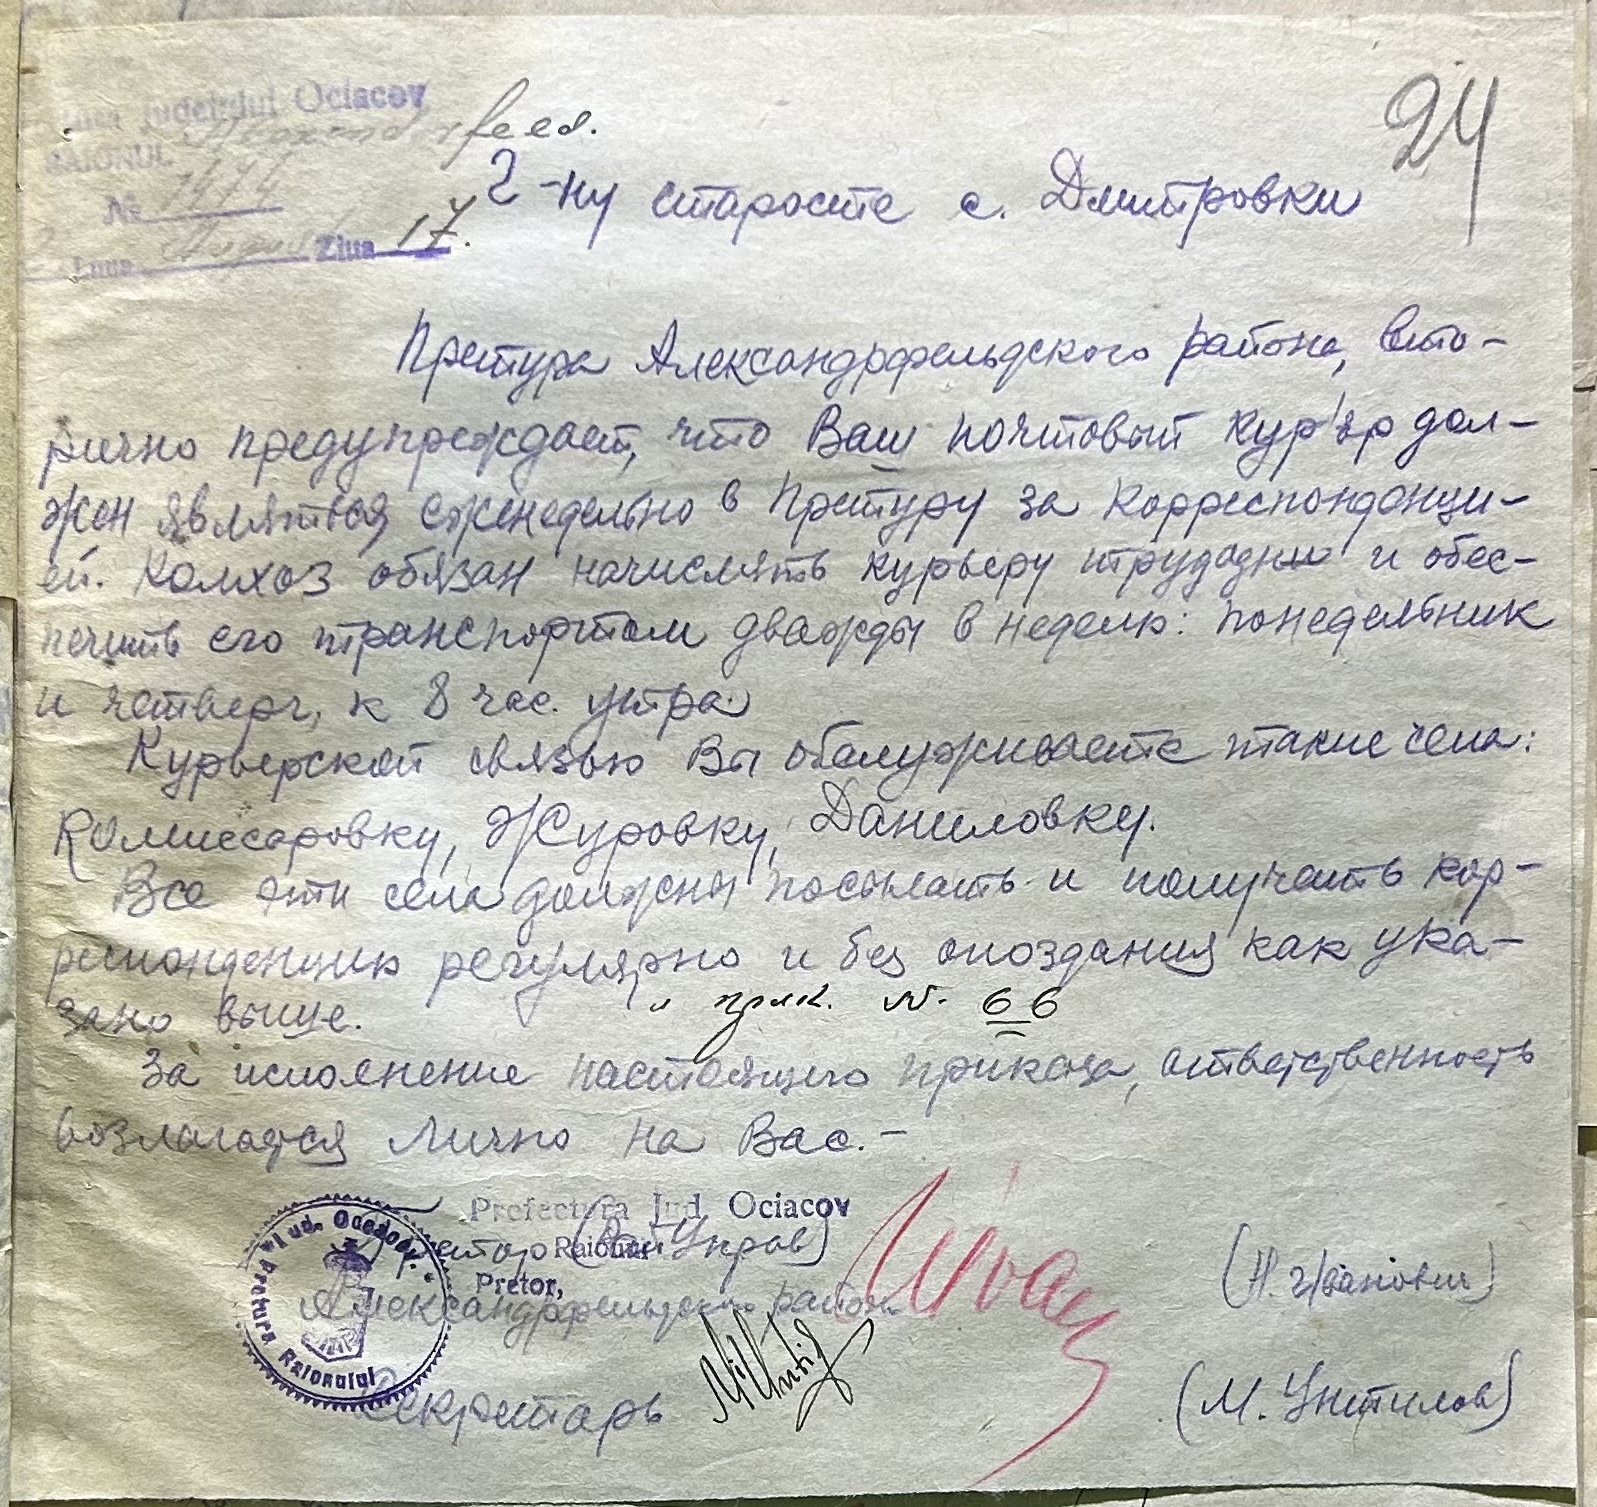 Judetului Ociacov
Alexanderfeld.
RAIONUL
№ 1474
24
Luna August Ziua 17.
Г-ну старосте с. Дмитровки
Претура Александрфельдского района, вто-
рично предупреждает, что Ваш почтовый кур'ер дол-
жен являться еженедельно в Претуру за корреспонденци-
ей. Колхоз обязан начислять курьеру трудодни и обес-
печить его транспортом дважды в неделю: понедельник
и четверг, к 8 час. утра.
Курьерской связью Вы обслуживаете такие села:
Комиссаровку, Журовку, Даниловку.
Все эти села должны посылать и получать кор-
респонденцию регулярно и без опоздания как ука-
зано выше. " прик. №. 66
За исполнение настоящего приказа, ответственность
возлагается лично на Вас.-
Prefectura Jud. Ociacov
Претор Raionul
Pretor,
Александрфельдского района
Pretura Raionului
Секретарь
(М. Унтилов)